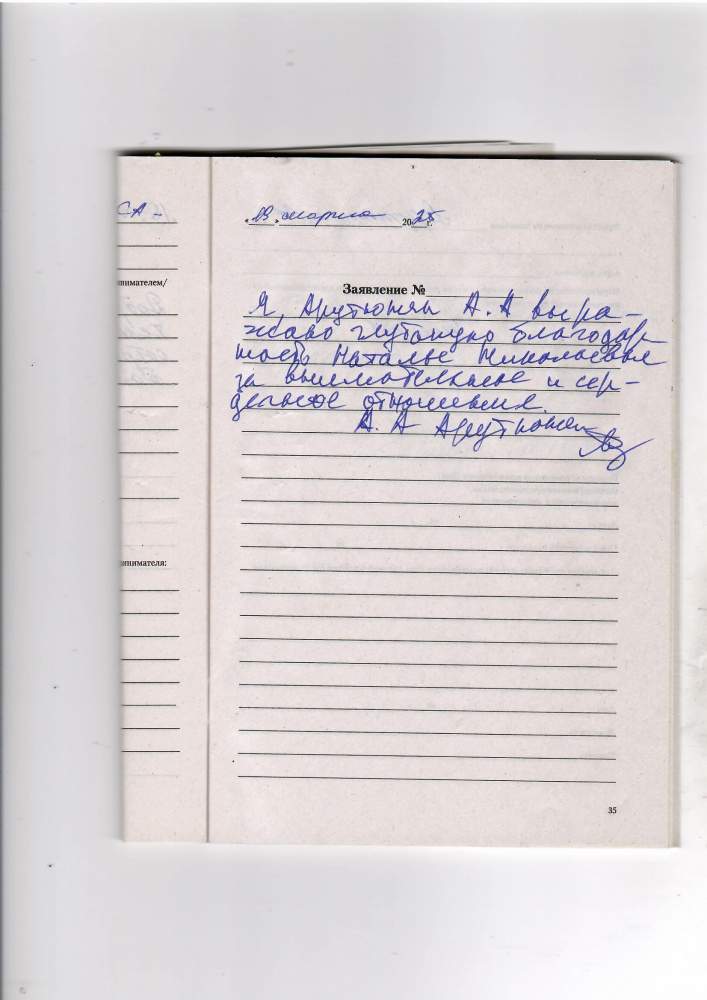 СА -
нимателем/
нимателя:
«19» марта 2025 г.
Заявление №
Я, Арутюнян А. А выра-
жаю глубокую благодар
ность Наталье Николаевне
за внимательное и сер-
дечное отношение.
А. А Арутюнян
35